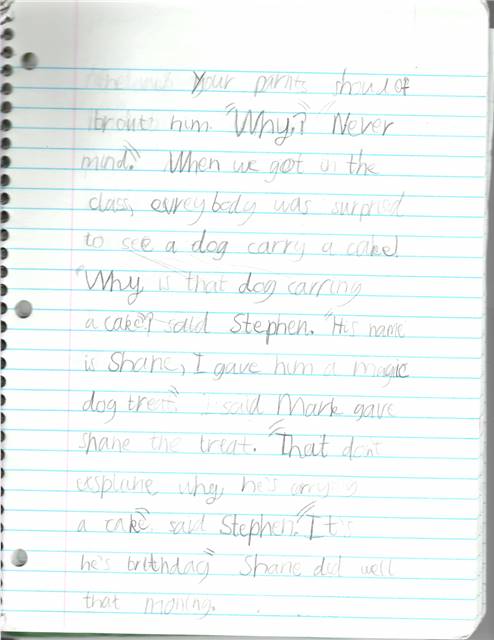 your parnts should of
brout him. "Why?" Never
mind." When we got in the
class, evreybody was surprised
to see a dog carry a cake!
"Why, is that dog carring
a cake"? said Stephen. "His name
is Shane, I gave him a magic
dog treat" I said Mark gave
shane the treat. "That dont
explane why, he's carrying
a cake". said Stephen. "It's
he's brithday" Shane did well
that moning.